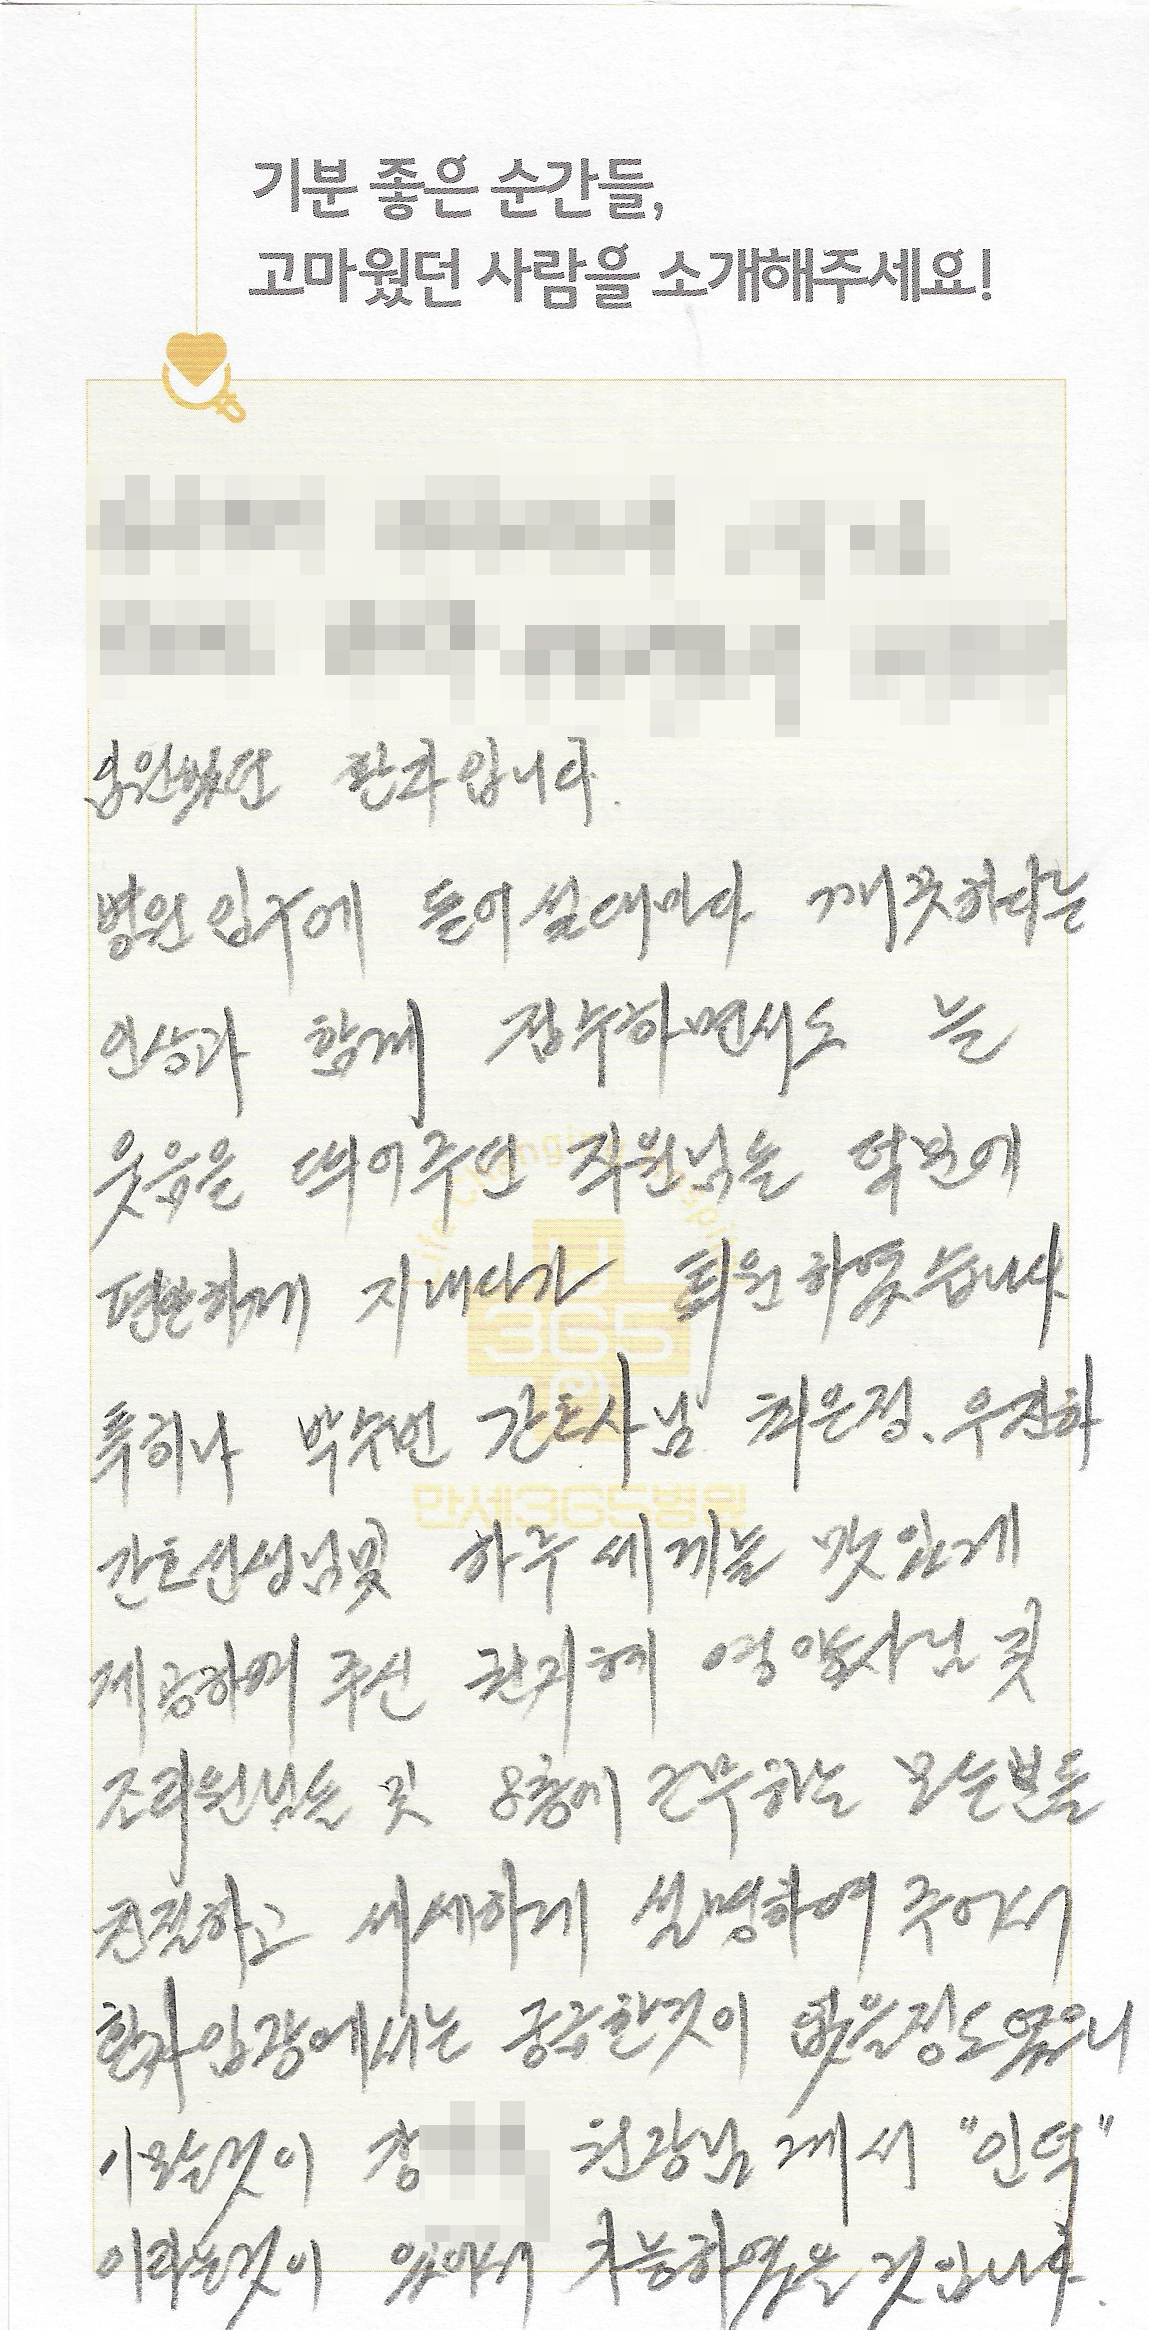 기분 좋은 순간들,
고마웠던 사람을 소개해주세요!
입원했던 환자입니다.
병원입구에 들어설때마다 깨끗하다는
인상과 함께 접수하면서도 늘
웃음을 띄어주던 직원님들 덕분에
편안하게 지내다가 퇴원하였습니다
특히나 박수빈 간호사님 최은정. 우진하
간호선생님및 하루 세끼를 맛있게
제공하여 주신 권지혜 영양사님 및
조리원님들 및 8층에 근무하는 모든분들
친절하고 세세하게 설명하여 주어서
환자입장에서는 궁금한것이 없을정도였으니
이모든것이 장 원장님께서 "인덕"
이라는것이 있어서 가능하였을 것입니다.
Life Changing Hospital
365
만세365병원